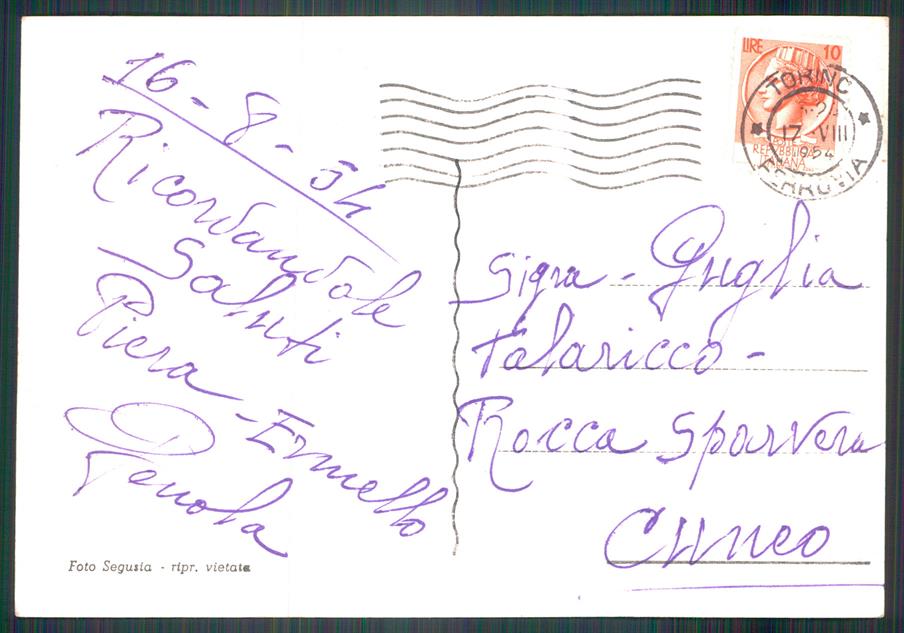 16 - 8 - 54
Ricordandole
Saluti
Piera - Ermello
Penola
Foto Segusia - ripr. vietata
LIRE 10
TORINO
17 - VIII
1954
FERROVIA
REPUBBLICA
ITALIANA
Sigra - Guglia
Talaricco -
Rocca Sparvera
Cuneo